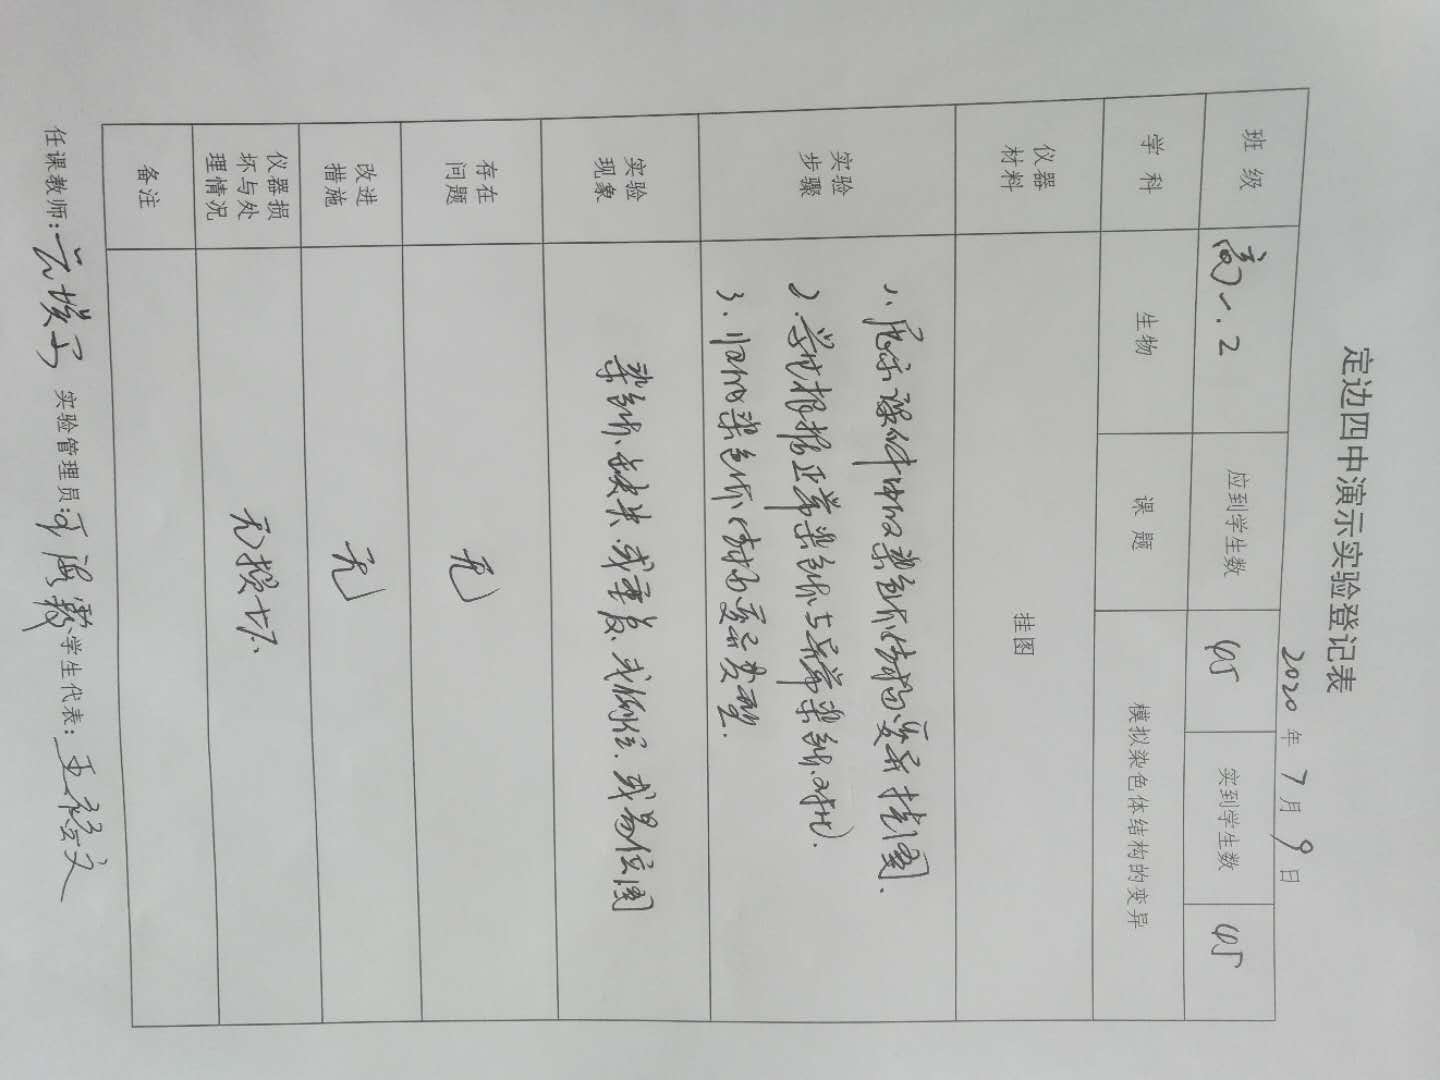 定边四中演示实验登记表
2020 年 7 月 9 日
班 级 高一.2 应到学生数 45 实到学生数 45
学 科 生物 课 题 模拟染色体结构的变异
仪器
材料 挂图
实验
步骤
1、展示课件中的染色体结构变异挂图.
2.学生根据正常染色体与异常染色体对比.
3.归纳染色体结构变异类型.
实验
现象 染色体缺失、或重复、或倒位、或易位图
存在
问题 无
改进
措施 无
仪器损
坏与处
理情况 无损坏.
备注
任课教师: 实验管理员: 学生代表: 王